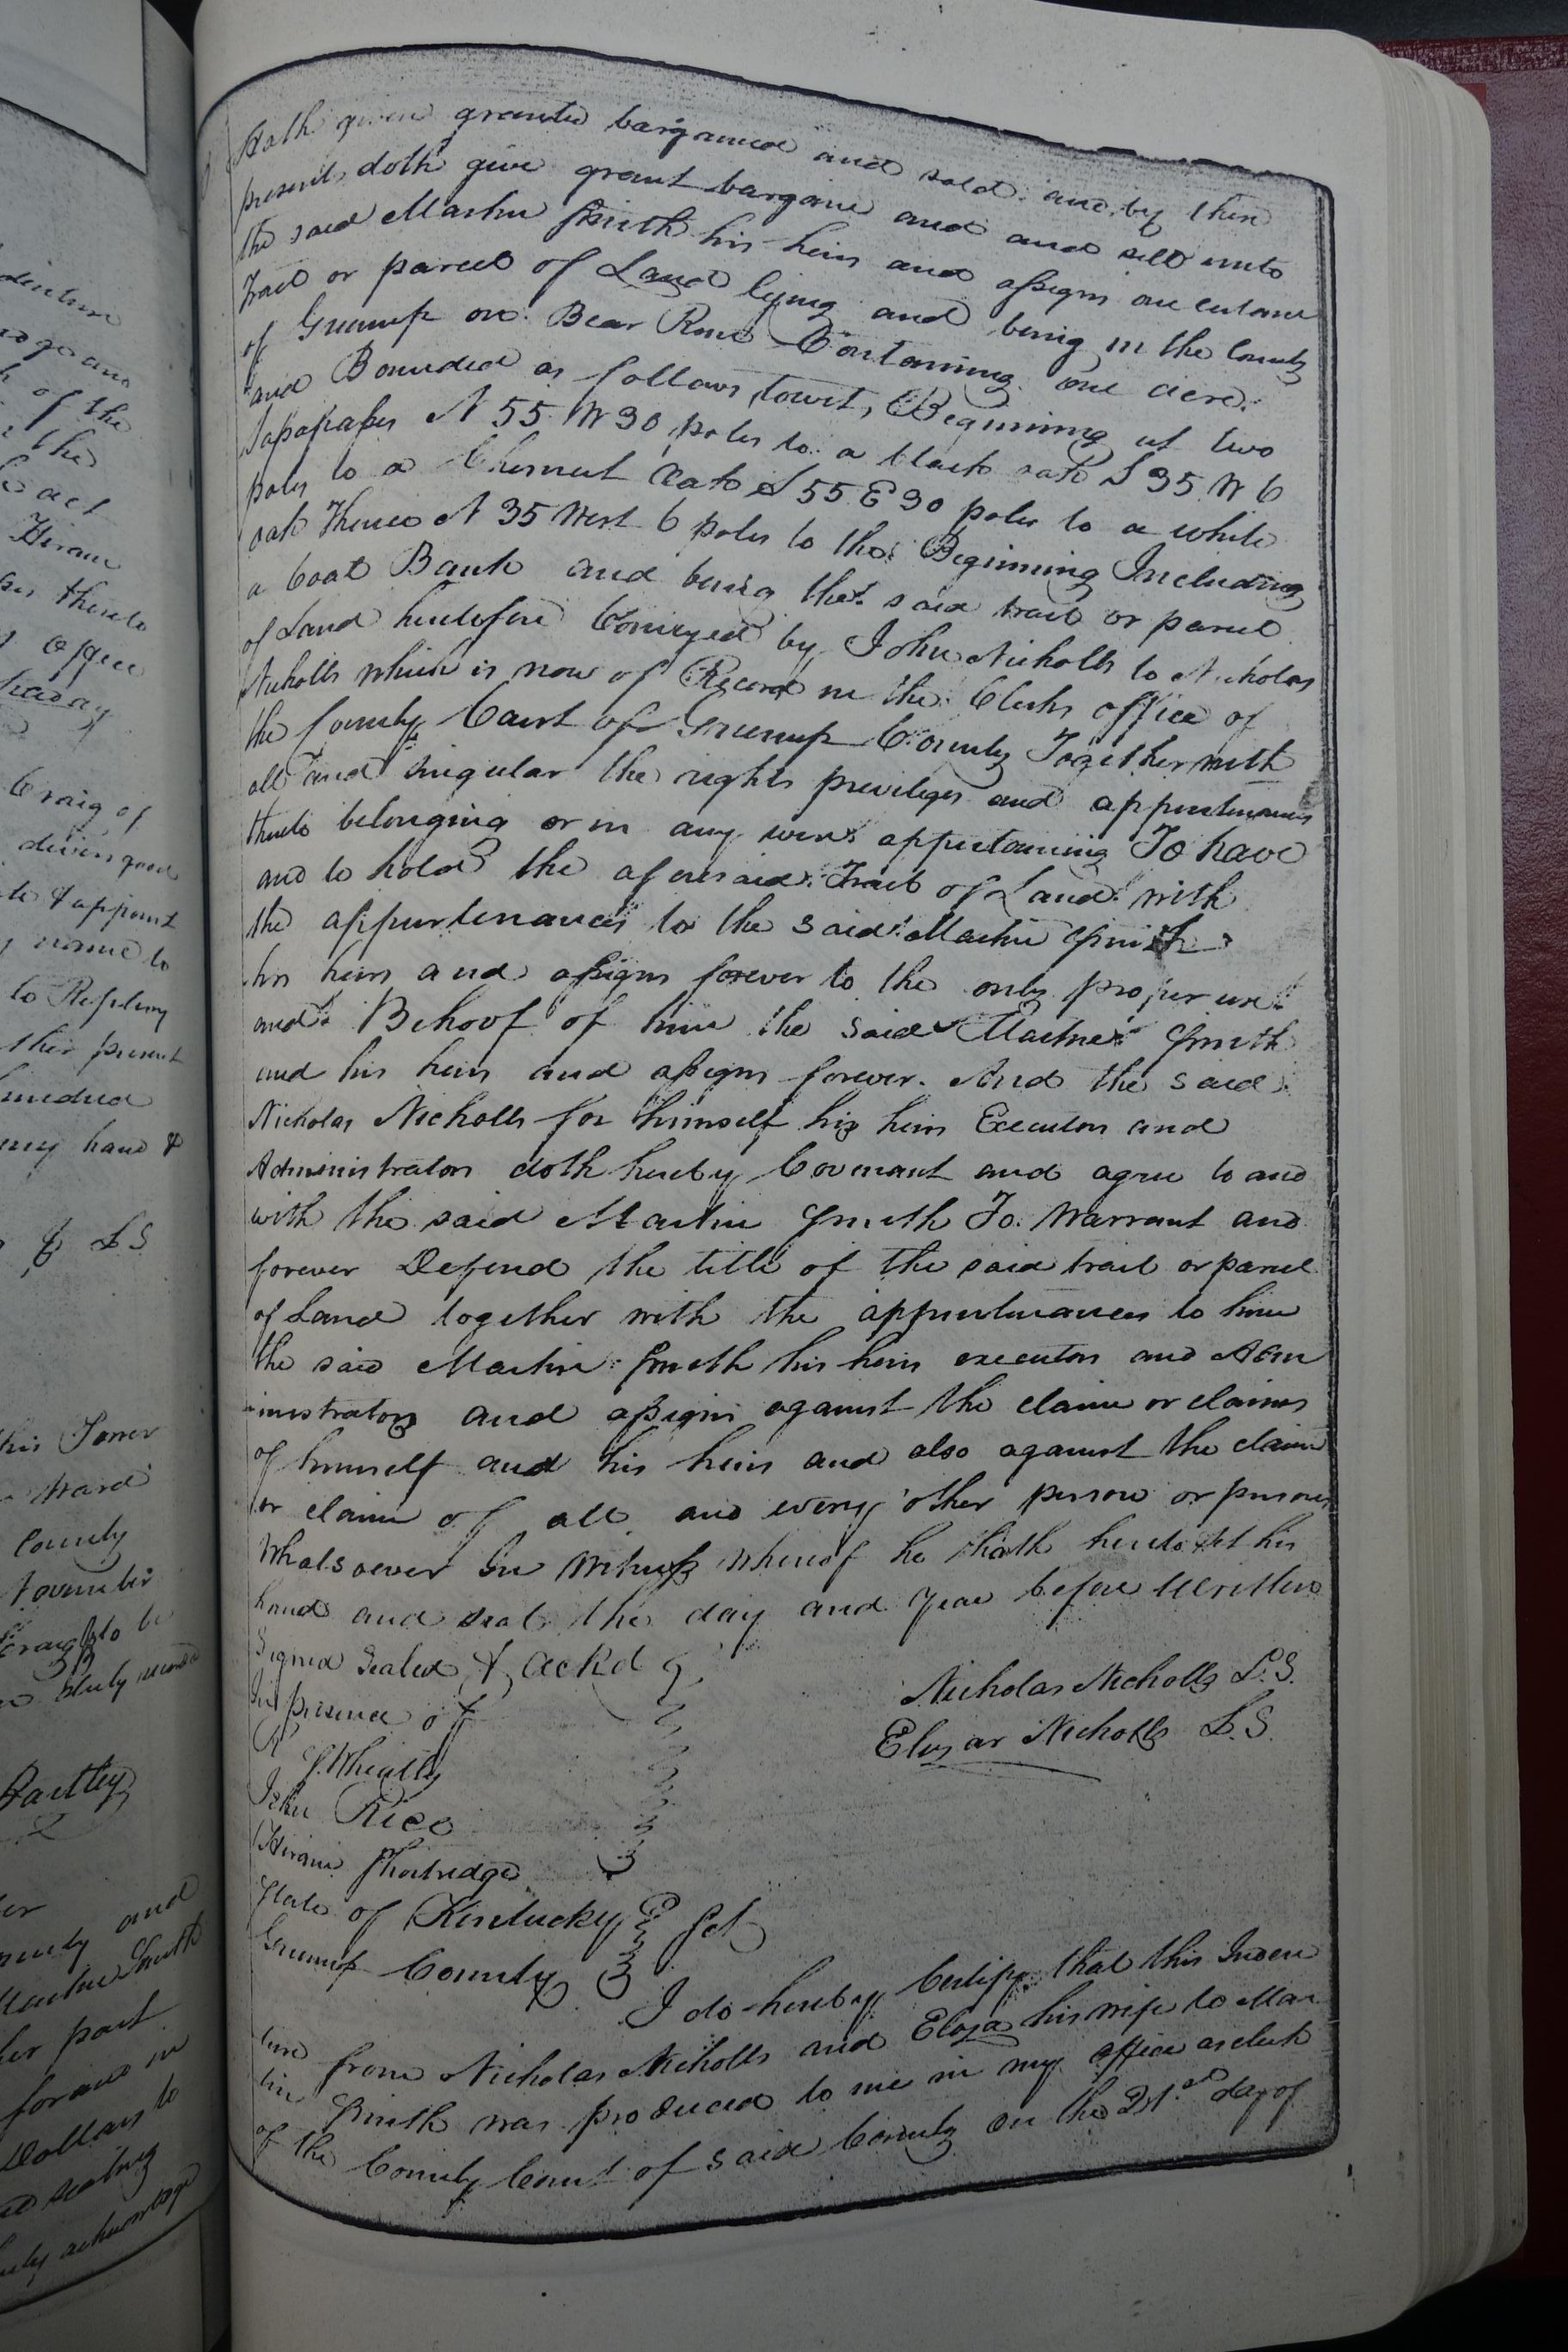 denture
of the
the
Hiram
thereto
office
Craig of
divers good
to & appoint
name to
to Replevy
their present
hundred
my hand &
L.S
his Power
Ward
County
November
Craig to be
duly record
Bartley
and
Martin Smith
her part
for and in
Dollars to
Hath given granted bargained and sold and by these
presents doth give grant bargain and and sell unto
the said Martin Smith his heirs and assigns one certain
Tract or parcel of Land lying and being in the County
of Greenup on Bear Run Containing one acre
and Bounded as follows, towit, Beginning at two
Sassafrasses N 55 W 30 poles to a black oak S 35 W 6
poles to a Chesnut Oak S 55 E 30 poles to a white
oak Thence N 35 West 6 poles to the Beginning Including
a Coal Bank and being the said tract or parcel
of Land heretofore Conveyed by John Nicholls to Nicholas
Nicholls which is now of Record in the Clerks office of
the County Court of Greenup County Together with
all and singular the rights privileges and appurtenances
thereto belonging or in any wise appertaining To have
and to hold the aforesaid Tract of Land with
the appurtenances to the said Martin Smith
his heirs and assigns forever to the only proper use
and Behoof of him the said Martin Smith
and his heirs and assigns forever. And the said
Nicholas Nicholls for himself his heirs Executors and
Administrators doth hereby Covenant and agree to and
with the said Martin Smith To Warrant and
forever Defend the title of the said tract or parcel
of Land together with the appurtenances to him
the said Martin Smith his heirs executors and Adm
inistrators and assigns against the claim or claims
of himself and his heirs and also against the claim
or claim of all and every other person or persons
Whatsoever In Witness whereof he hath hereto set his
hand and seal the day and year before Written
Signed Sealed & ackd
In presence of
Nicholas Nicholls L.S.
J. Wheatly
Elizar Nicholls L.S.
John Rice
Hiram Shortridge
State of Kentucky
Greenup County Sct
I do hereby Certify that this Inden
ture from Nicholas Nicholls and Eliza his wife to Mar
tin Smith was produced to me in my office as clerk
of the County Court of said County on the 21st day of